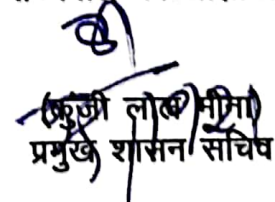 (कुंजी लाल मीना)
प्रमुख शासन सचिव